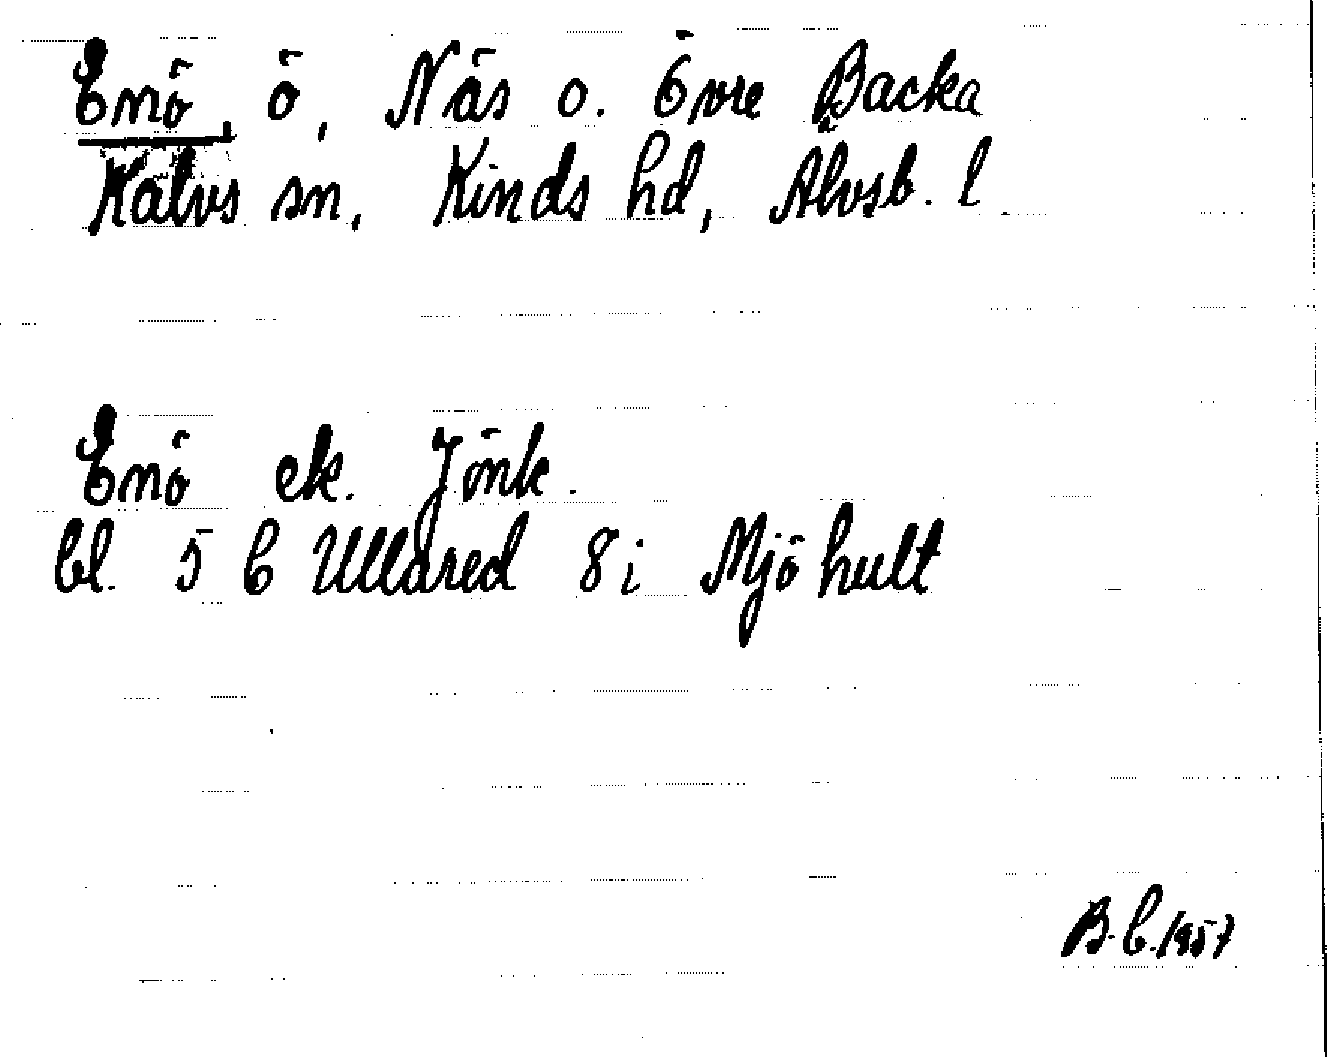 Enö, ö, Näs o. Övre Backa
Kalvs sn, Kinds hd, Älvsb. l
Enö ek. Jönk.
bl. 5 C Ullared 8 i Mjöhult
B.C. 1957